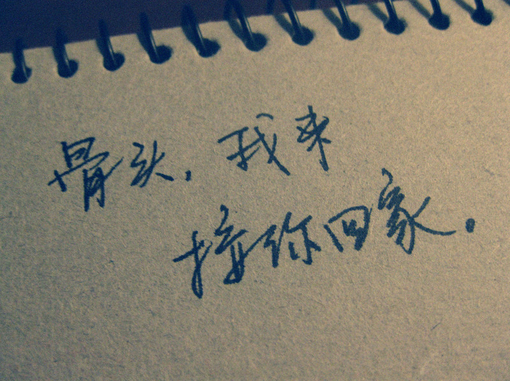 骨头,我来
接你回家。